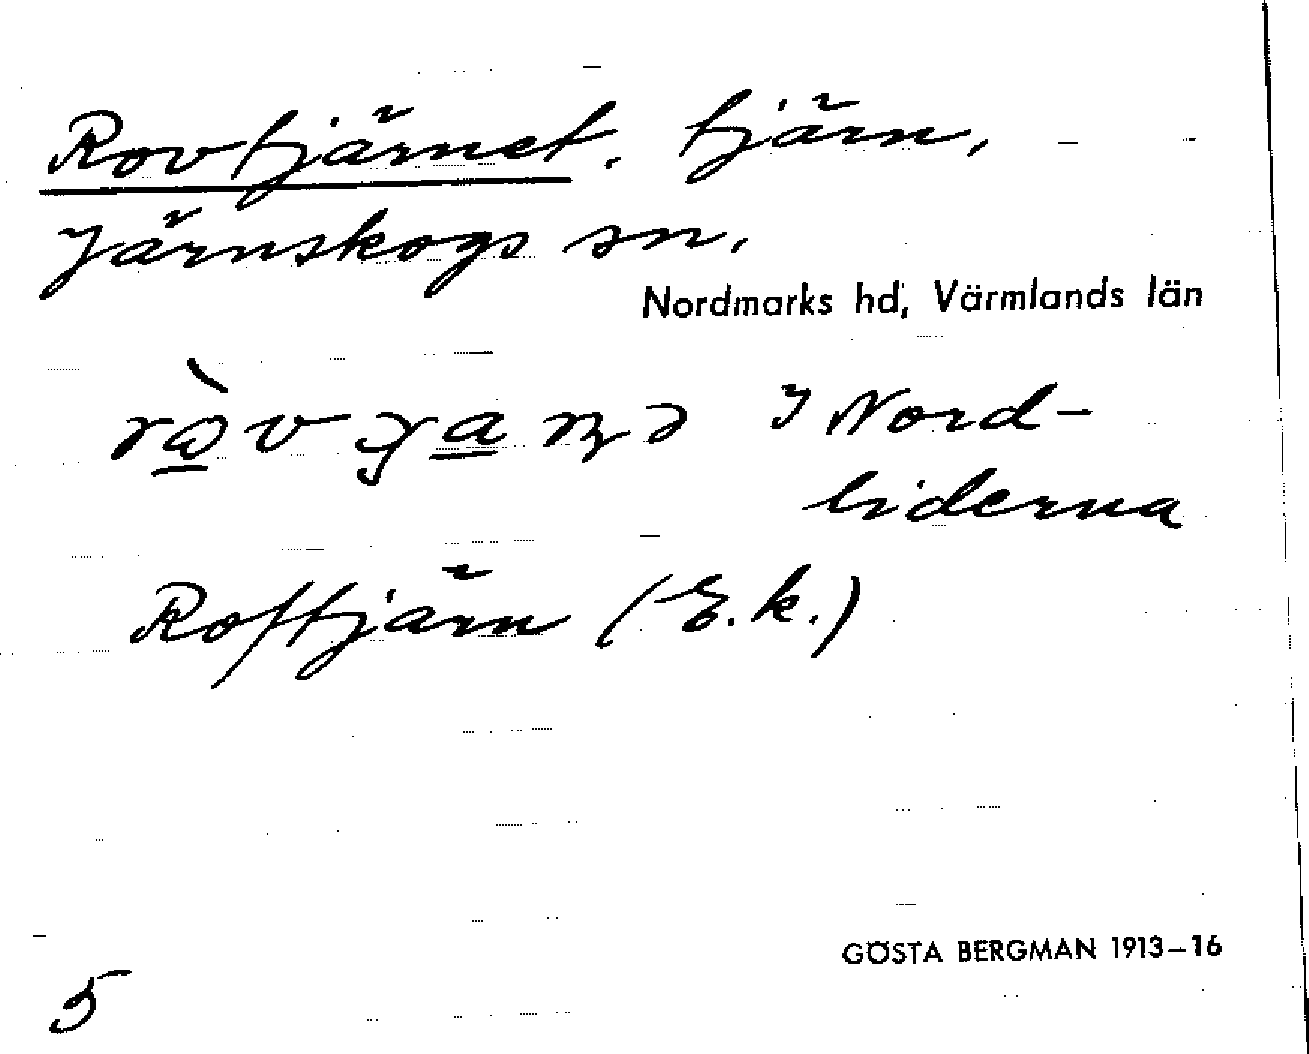 Rovtjärnet. tjärn,
Järnskogs sn.
Nordmarks hd, Värmlands län
I Nord-
liderna
Roftjärn (E.k.)
GÖSTA BERGMAN 1913–16
5